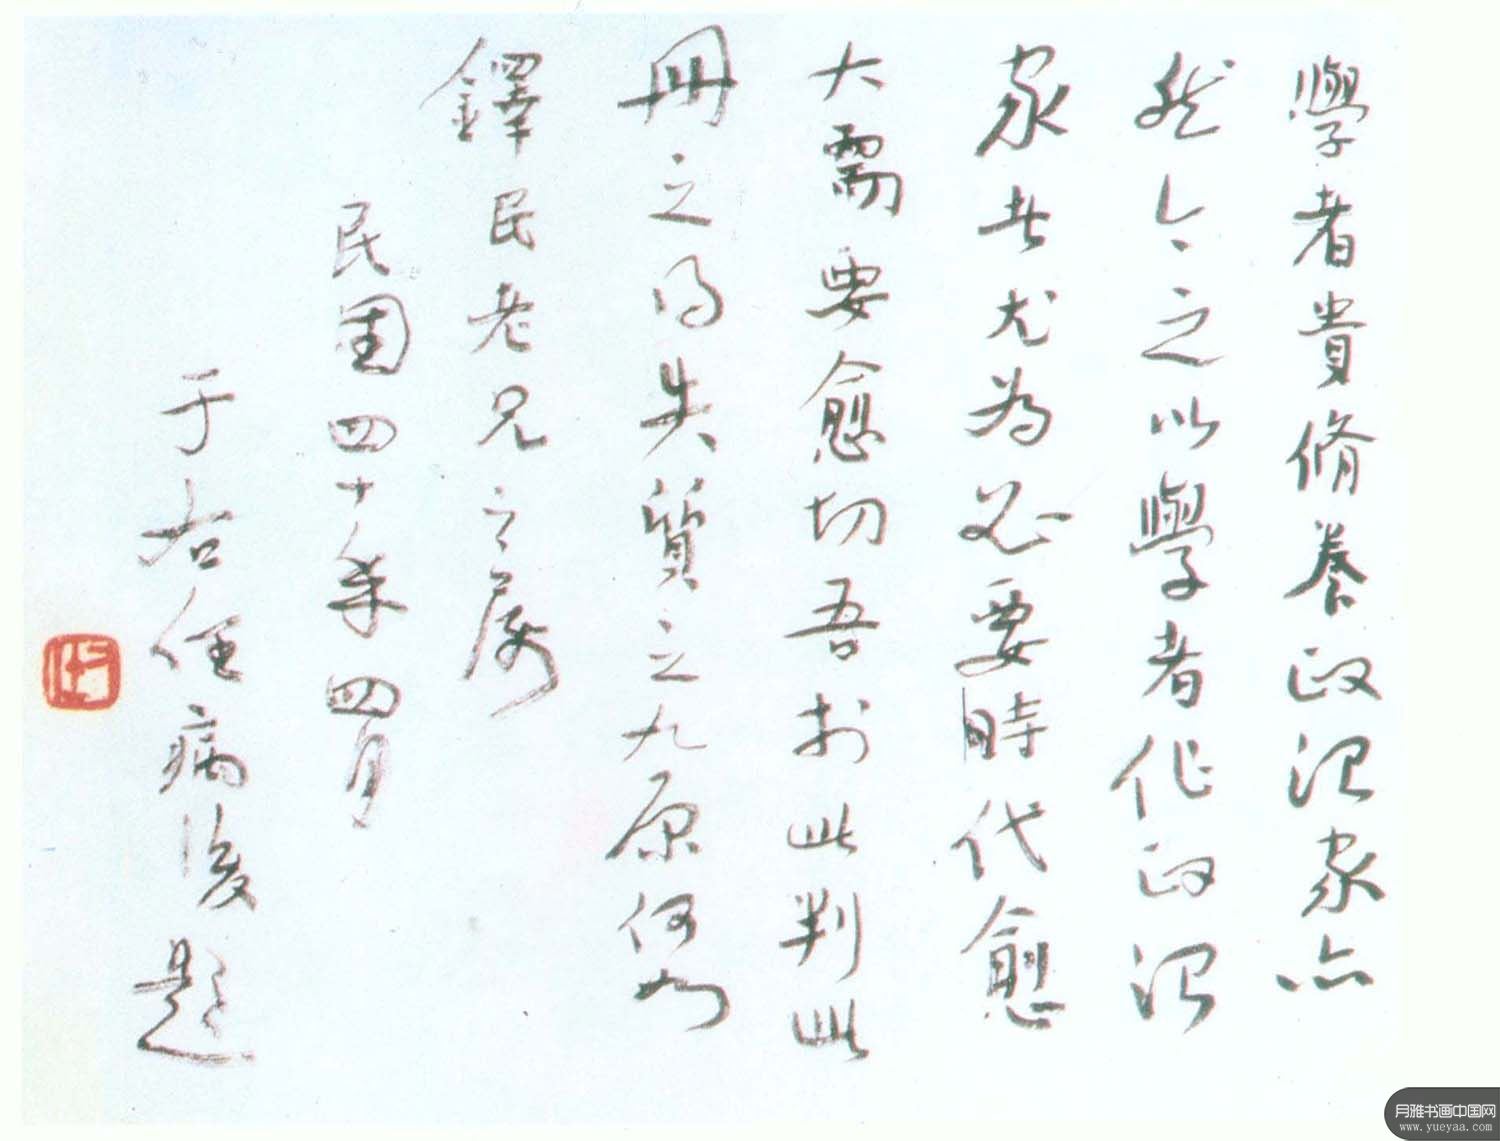 學者貴脩養政治家亦
然今之以學者作政治
家者尤為必要時代愈
大需要愈切吾於此判此
冊之得失質之九原何如
鐸民老兄之屬
民國四十年四月
于右任病後題
月雅书画中国网
www.yueyaa.com